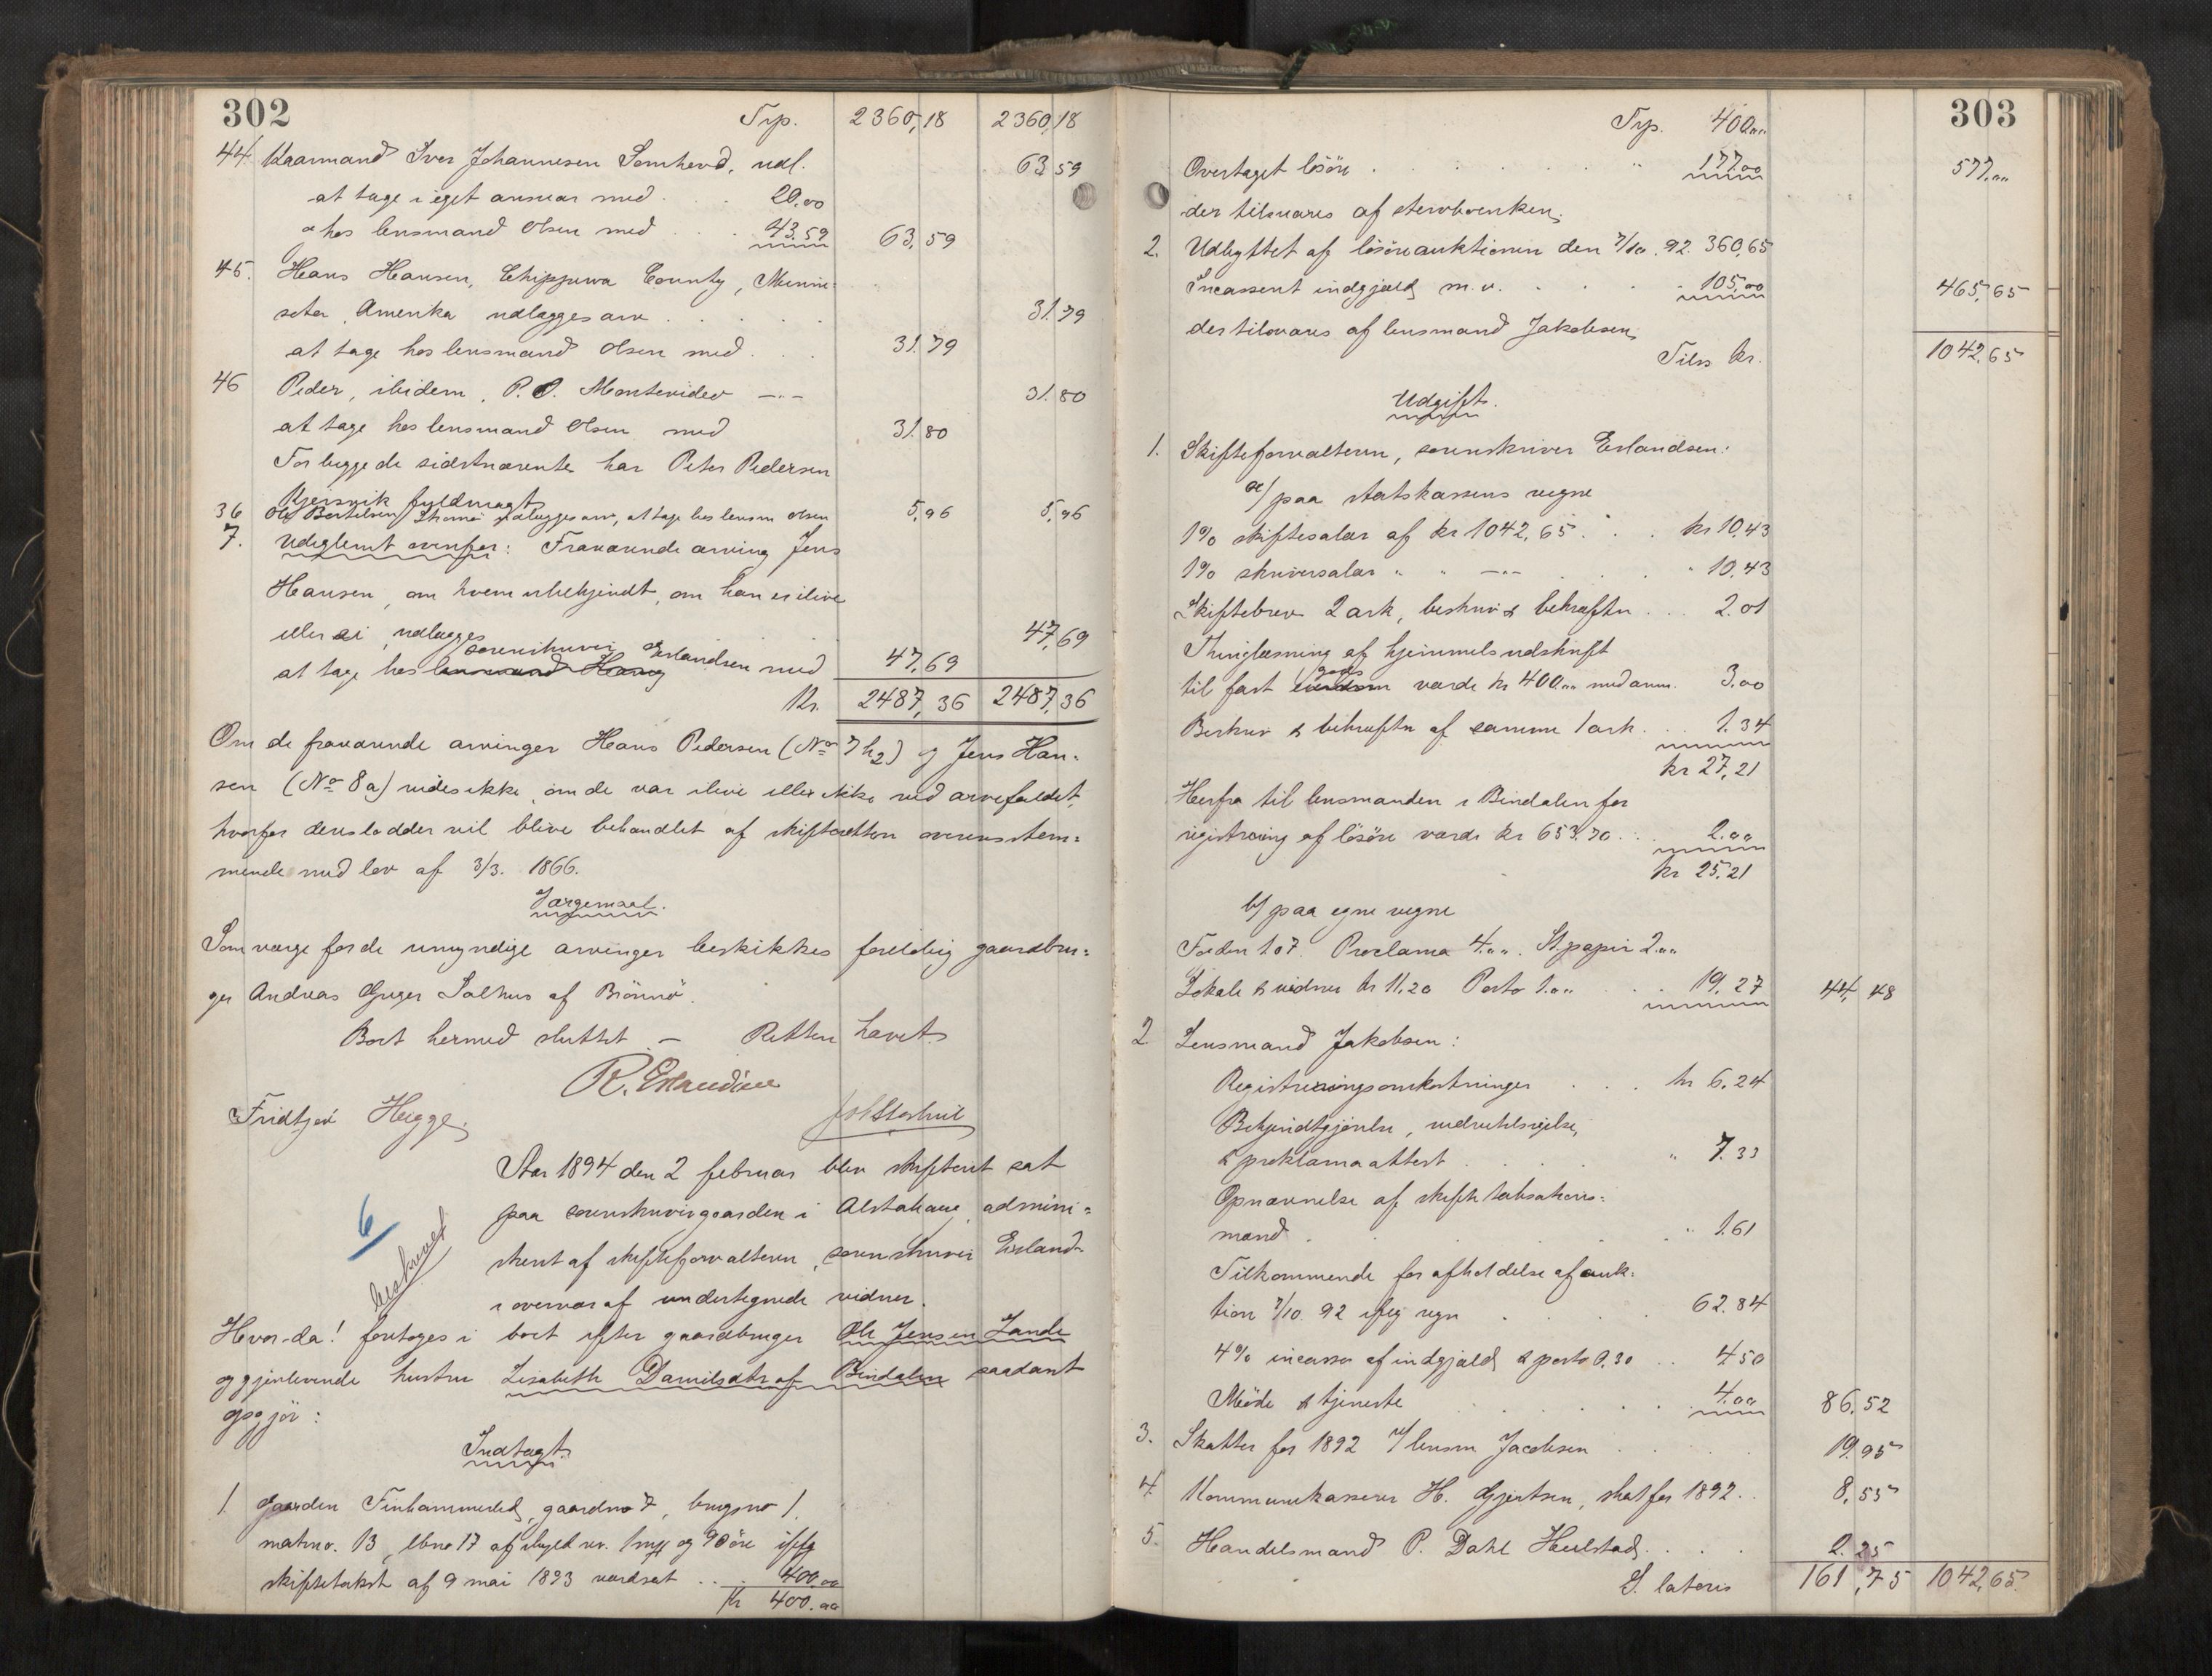 302
Trp. 2360,18 2360,18
44 Kaarmand Iver Johannesen Somhovd, udl. 63 59
at tage i eget ansvar med . . 20.00
& hos lensmand Olsen med . . . 43.59 63,59
45. Hans Hansen, Chippewa County, Minne-
sota, Amerika udlægges arv . . . . . 31.79
at tage hos lensmand Olsen med . . . 31.79
46 Peder, ibidem, P. O. Montevideo —"— 31.80
at tage hos lensmand Olsen med 31.80
For begge de sidstnævnte har Peter Pedersen
Kjeisvik fuldmagt
36 Ole Bertilsen udlægges arv, at tage hos lensm Olsen 5,96 5,96
7. Udeglemt ovenfor: Fraværende arving Jens
Hansen, om hvem ubekjendt, om han er ilive
eller ei, udlægges 47,69
sorenskriver Erlandsen
at tage hos lensmand Haug med 47,69
Kr. 2487,36 2487,36
Om de fraværende arvinger Hans Pedersen (No 7 h2) og Jens Han-
sen (No 8a) vides ikke, om de var ilive eller ikke ved arvefaldet,
hvorfor deres lodder vil blive behandlet af skifteretten overensstem-
mende med lov af 3/3. 1866.
Værgemaal.
Som værge for de umyndige arvinger beskikkes foreløbig gaardbru-
ger Andreas Greger Salhus af Brönnö.
Boet hermed sluttet. — Retten hævet.
R. Erlandsen
Fridtjov Hegge.
Aar 1894 den 2 februar blev skifteret sat
paa sorenskrivergaarden i Alstahaug, admini-
6
beskrevet
streret af skifteforvalteren, sorenskriver Erland-
i overvær af undertegnede vidner.
Hvor-da! foretoges i boet efter gaardbruger Ole Jensen Lande
og gjenlevende hustru Lisabeth Danielsdtr af Bindalen saadant
opgjör:
Indtægt
1. Gaarden Finhammerled, gaardno 7, brugsno 1,
matrno. 13, lbno 17 af skyld rev. 1 mrk og 90 öre ifflg
skiftetakst af 9 mai 1893 værdsat . . . 400.00
Kr 400.00
303
Trp. 400""
Overtaget lösöre . . . . . . " 177.00 577.""
der tilsvares af sterbboenken.
2. Udbyttet af lösöreauktionen den 7/10. 92. 360,65
Incasseret indgjæld m. v. . . . . 105,00 465,65
der tilsvares af lensmand Jakobsen
Tils kr. 1042,65
Udgift.
1. Skifteforvalteren, sorenskriver Erlandsen:
a/ paa statskassens vegne
1% skiftesalær af kr 1042,65 . . . kr 10,43
1% skriversalær " " —"— . . . " 10,43
Skiftebrev 2 ark, beskriv & bekræftn . . . 2.01
Thinglæsning af hjemmelsudskrift
gods
til fast eiendom værdi kr 400."" med anm. 3,00
Beskriv & bekræftn af samme 1 ark . . . 1.34
kr 27,21
Herfra til lensmanden i Bindalen for
registrering af lösöre værdi kr 653.70 . . 2.00
kr 25,21
b/ paa egne vegne
Foden 1.07. Proclama 4."". St.papir 2.""
Lokale & vidner kr 11,20 Porto 1."" . . . 19.27 44,48
2 Lensmand Jakobsen:
Registreringsomkostninger . . . kr 6.24
Bekjendtgjörelse,
& proklamaattest . . . . . " 7.33
Opnævnelse af skiftetakstations-
mænd . . . . . " 1.61
Tilkommende for afholdelse af auk-
tion 7/10. 92 iflg regn . . . . 62.84
4% incasso af indgjæld & porto 0.30 . . . 4 50
Möde & tjeneste . . . . . 4.00 86,52
3. Skatter for 1892 v/ lensm Jacobsen . . . . 19,95
4. Kommunekasserer H. Gjertsen, skat for 1892 . . 8,55
5. Handelsmand P. Dahl Heilstad . . . . 2.25
S. lateris 161,75 1042,65